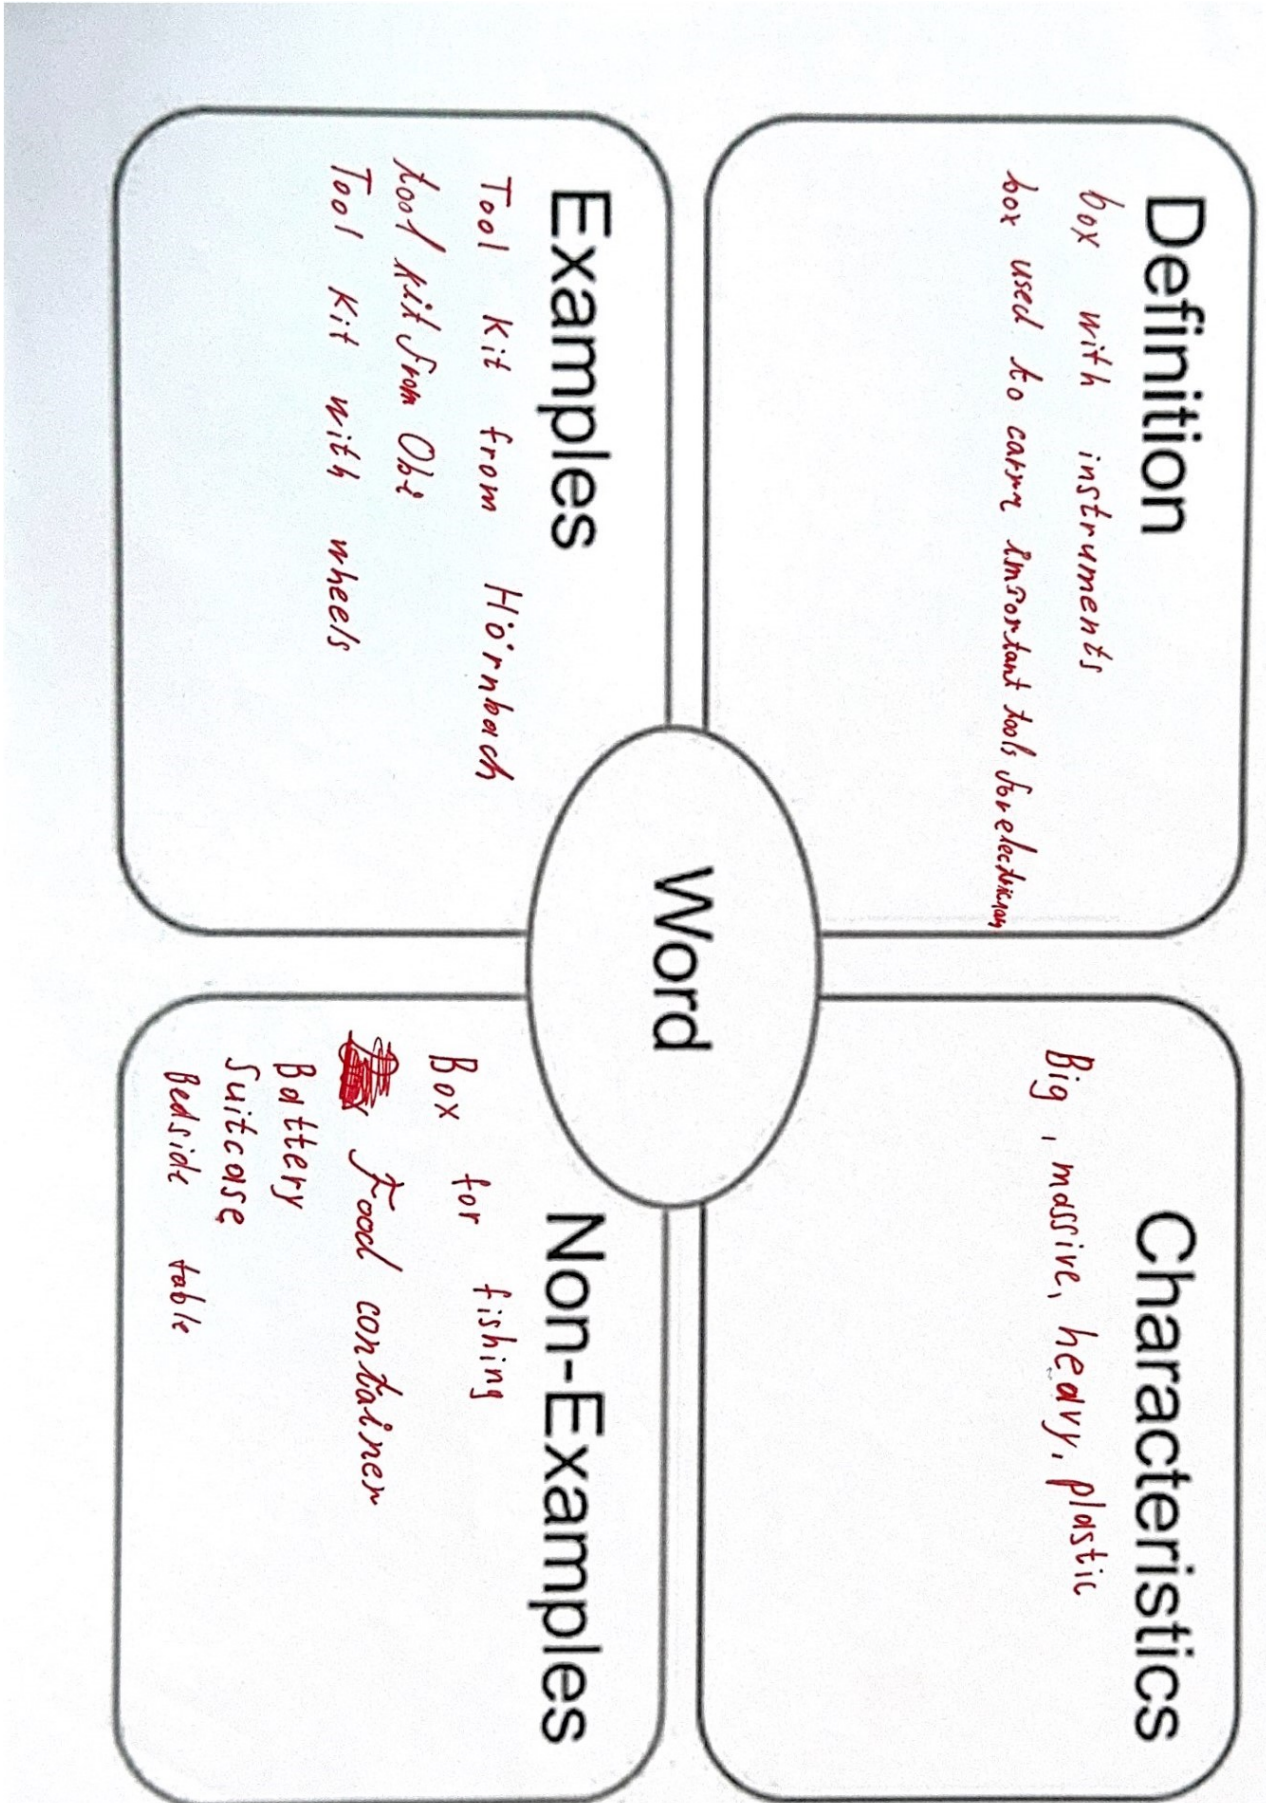 Definition
box with instruments
box used to carry important tools for
Characteristics
Big, massive, heavy, plastic
Word
Examples
Tool Kit from Hörnbach
tool kit from Obi
Tool Kit with wheels
Non-Examples
Box for fishing
Food container
Battery
Suitcase
Bedside table